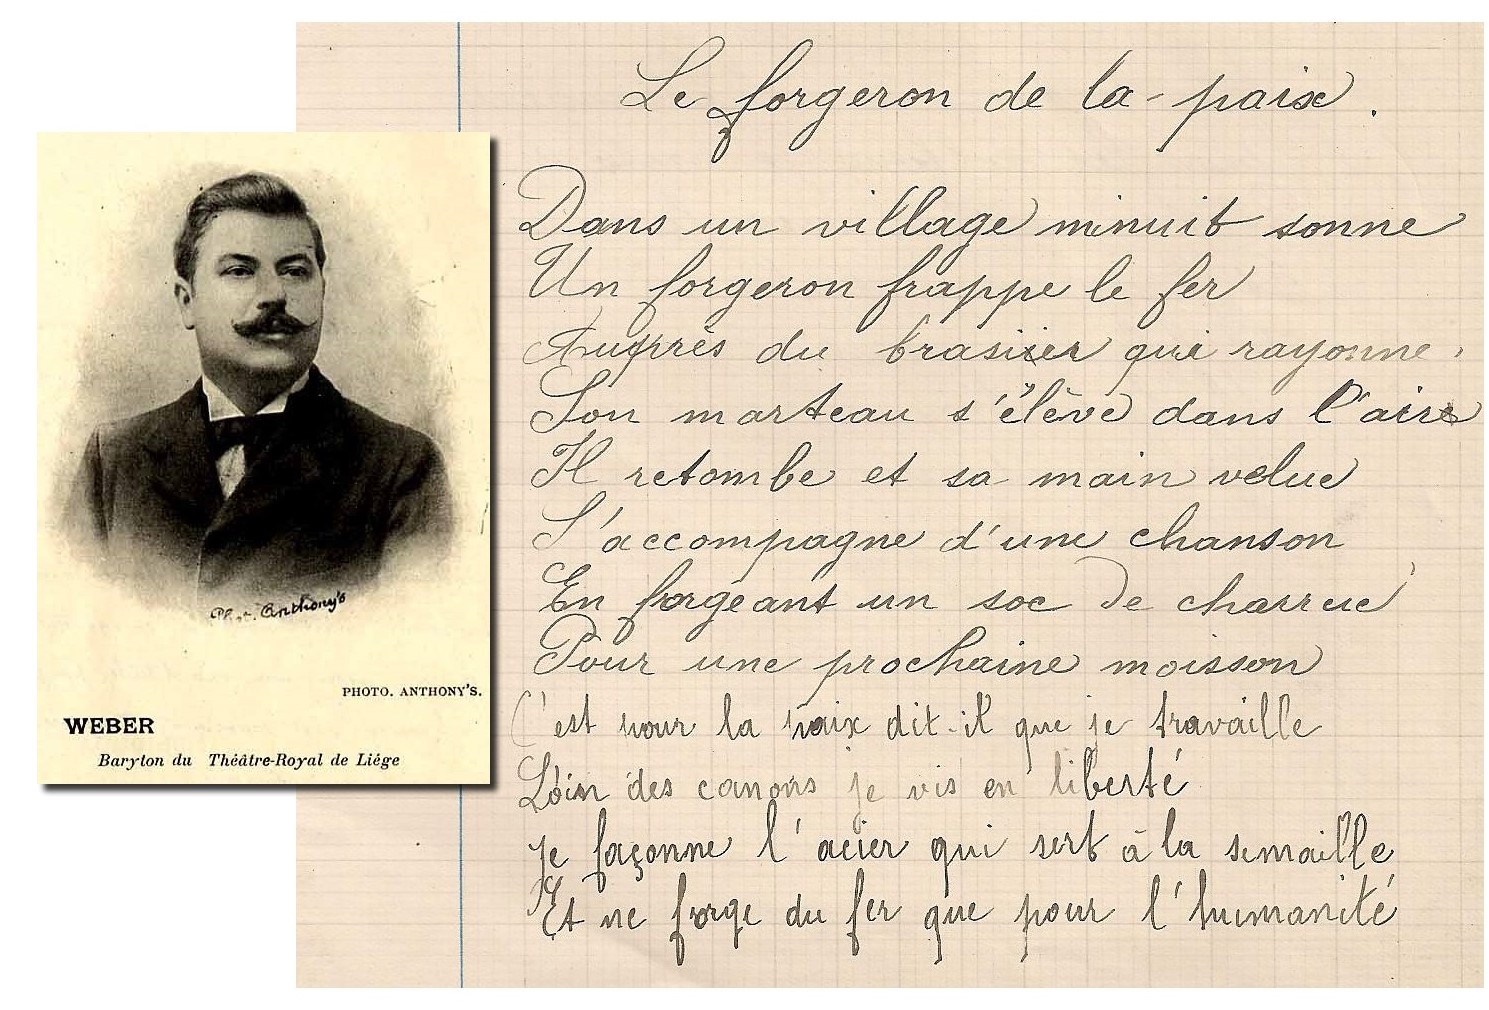 Le forgeron de la paix.
Dans un village minuit sonne
Un forgeron frappe le fer
Auprès du brasier qui rayonne,
Son marteau s'élève dans l'air
Il retombe et sa main velue
S'accompagne d'une chanson
En forgeant un soc de charrue
Pour une prochaine moisson
C'est pour la paix dit-il que je travaille
Loin des canons je vis en liberté
Je façonne l'acier qui sert à la semaille
Et ne forge du fer que pour l'humanité
Anthony's
PHOTO. ANTHONY'S.
WEBER
Baryton du Théâtre-Royal de Liége